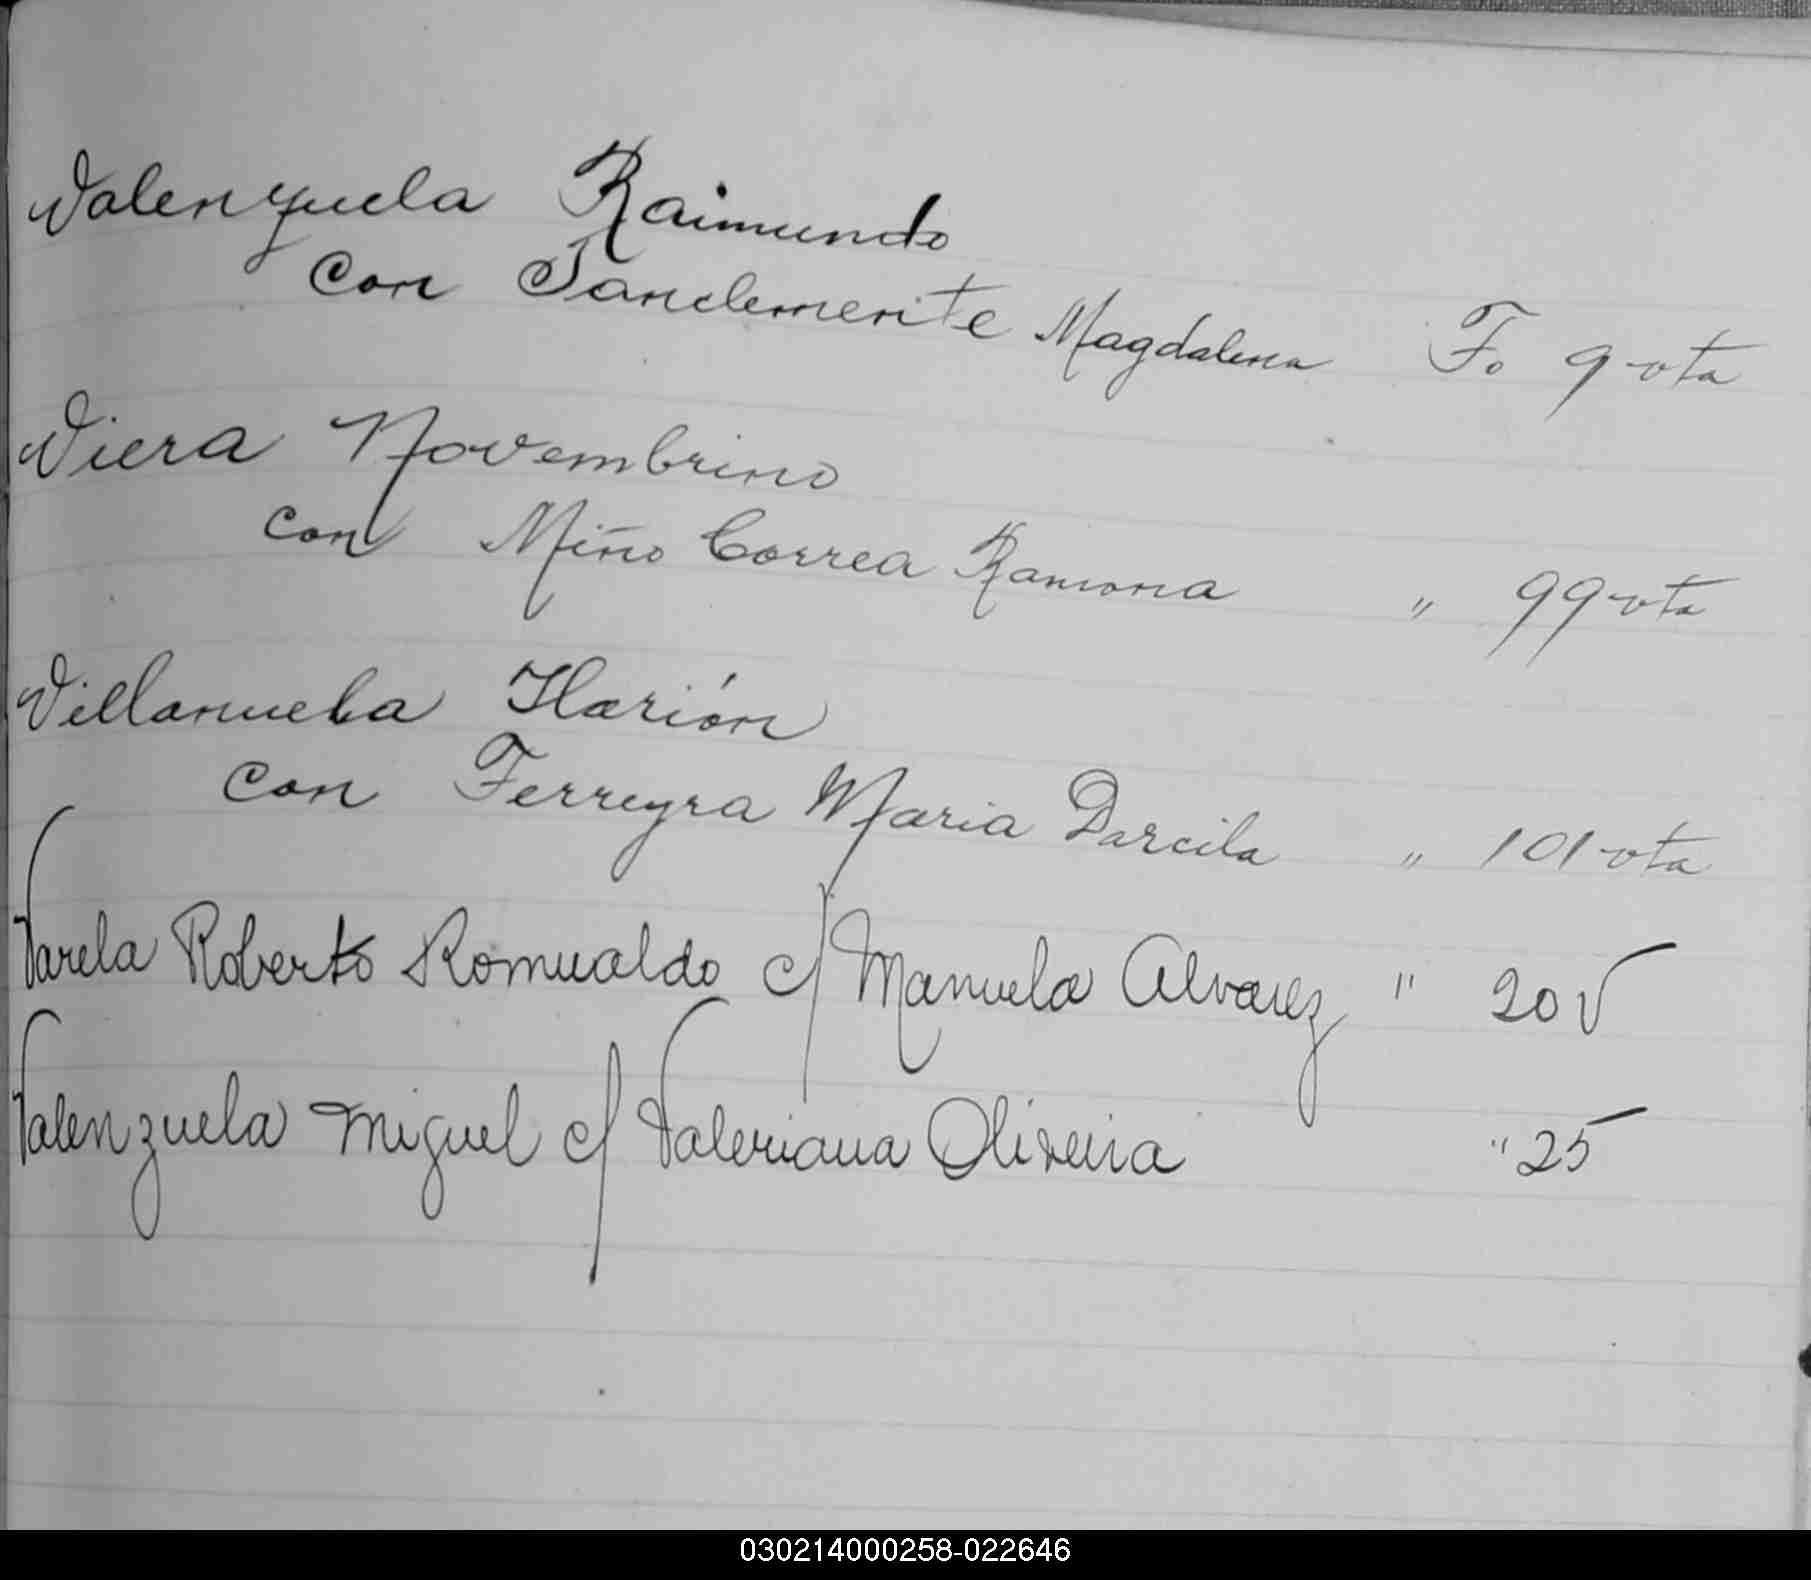 Valenzuela Raimundo
Con Sanclemente Magdalena Fo 9 vta
Viera Novembrino
con Miño Correa Ramona " 99 vta
Villanueba Ilarión
con Ferreyra Maria Darcila " 101 vta
Varela Roberto Romualdo c/ Manuela Alvarez " 20 V
Valenzuela Miguel c/ Valeriana Oliveira " 25
030214000258-022646